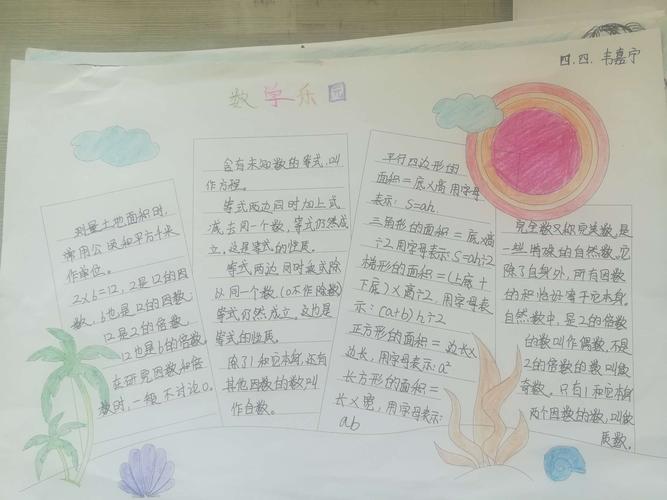 四.四. 韦嘉宁
数学乐园
测量土地面积时,
常用公顷和平方千米
作单位。
2×6=12, 2是12的因
数, 6也是12的因数,
12是2的倍数,
12也是6的倍数。
在研究因数和倍
数时, 一般不讨论0。
含有未知数的等式,叫
作方程。
等式两边同时加上或
减去同一个数, 等式仍然成
立, 这是等式的性质。
等式两边同时乘或除
以同一个数(0不作除数)
等式仍然成立, 这也是
等式的性质。
除了1和它本身,还有
其他因数的数叫
作合数。
平行四边形的
面积=底×高 用字母
表示: S=ah.
三角形的面积=底×高
÷2 用字母表示:S=ah÷2
梯形的面积=(上底+
下底)×高÷2, 用字母表
示:(a+b)h÷2
正方形的面积=边长×
边长, 用字母表示:a²
长方形的面积=
长×宽, 用字母表示:
ab
完全数又称完美数,是
一些特殊的自然数,它
除了自身外,所有因数
的和恰好等于它本身。
自然数中, 是2的倍数
的数叫作偶数, 不是
2的倍数的数叫做
奇数。只有1和它本身
两个因数的数,叫做
质数。